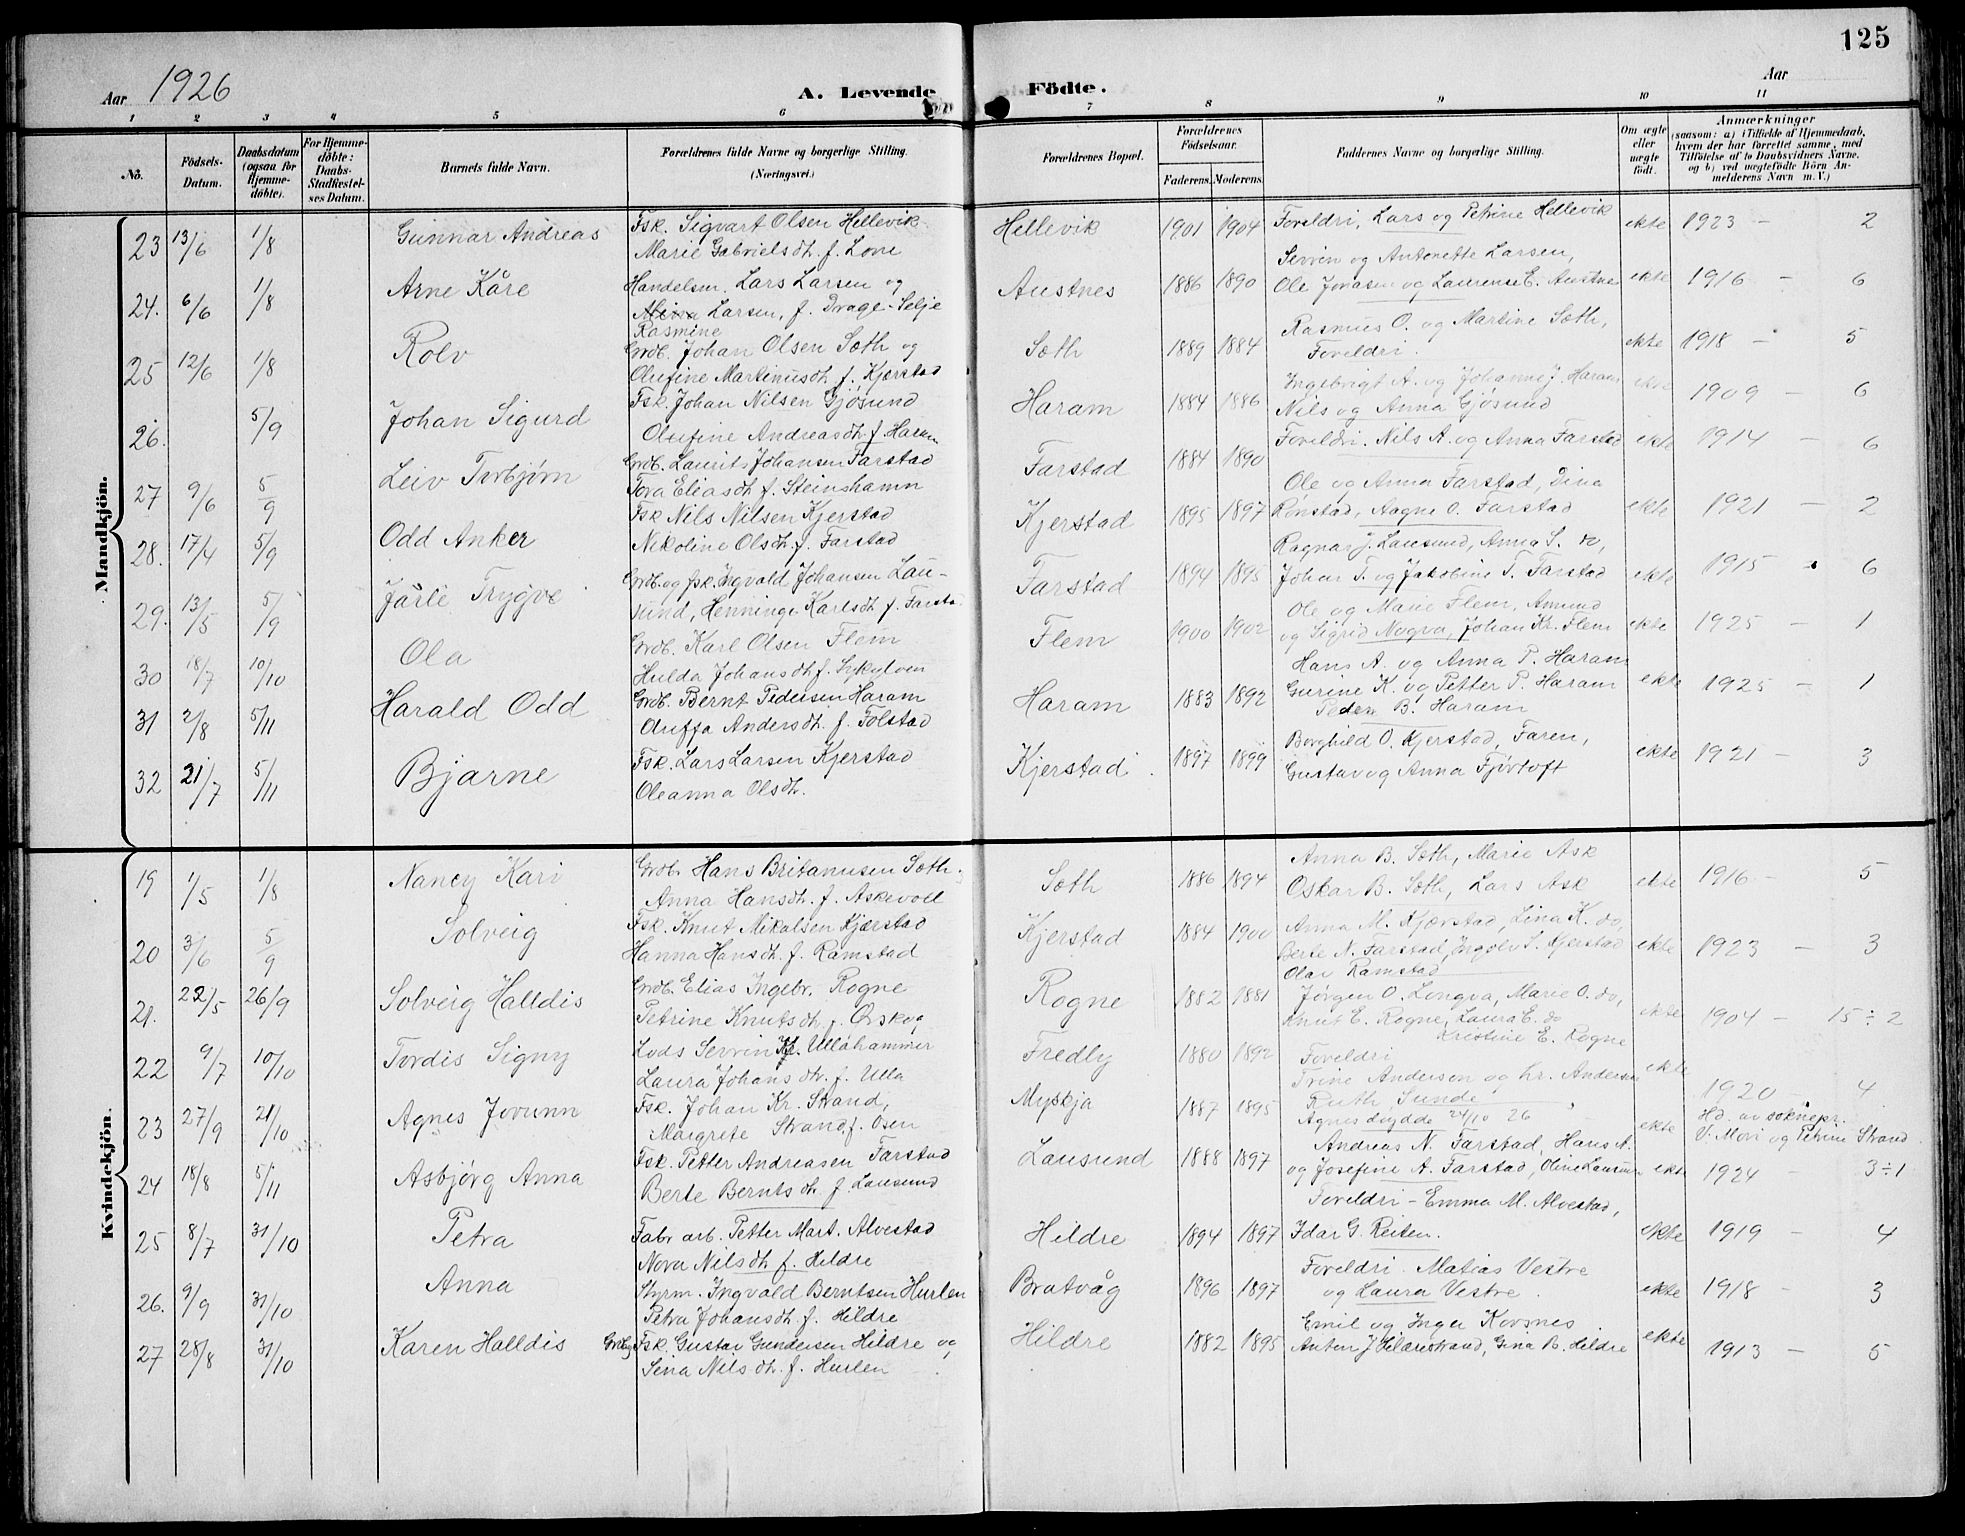 125
Aar 1926
A. Levende Födte.
Aar
1 2 3 4 5 6 7 8 9 10 11
No.
Födsels-Datum.
Daabsdatum (ogsaa for Hjemmedöbte).
For Hjemmedöbte: Daabs-Stadfæstelses Datum.
Barnets fulde Navn.
Forældrenes fulde Navne og borgerlige Stilling.
(Næringsvei.)
Forældrenes Bopæl.
Forældrenes Födselsaar.
Faderens. Moderens.
Faddernes Navne og borgerlige Stilling.
Om ægte eller uægte födt.
Anmærkninger
(saasom: a) i Tilfælde af Hjemmedaab, hvem der har forrettet samme, med Tilföielse af to Daabsvidners Navne, og b) ved uægtefödte Börn Anmelderens Navn m. V.)
Mandkjön.
23 13/6 1/8 Gunnar Andreas Fsk. Sigvart Olsen Hellevik Hellevik 1901 1904 Foreldri, Lars og Petrine Hellevik ekte 1923 – 2
Marie Gabrielsdh. f. Love
24. 6/6 1/8 Arne Kåre Handelsm. Lars Larsen og Austnes 1886 1890 Sevrin og Antonette Larsen, ekte 1916 – 6
Larsen, f. Drage-Selje Ole Jonasen og Laurense E. Austnes
Rasmine
25 12/6 1/8 Rolv Grdb. Johan Olsen Sæth og Sæth 1889 1884 Rasmus O. og Martine Sæth, ekte 1918 – 5
Olufine Martinusdh. f. Kjærstad Foreldri.
26. 5/9 Johan Sigurd Fsk. Johan Nilsen Gjøsund Haram 1884 1886 Ingebrigt A. og Johanne J. Haram ekte 1909 – 6
Olufine Andreasdh. f. Haram Nils og Anna Gjøsund
27 9/6 5/9 Leiv Torbjørn Grdb. Laurits Johansen Farstad Farstad 1884 1890 Foreldri. Nils A. og Anna Farstad ekte 1914 – 6
Tora Eliasdh f. Steinshamn
28. 17/4 5/9 Odd Anker Fsk Nils Nilsen Kjerstad Kjerstad 1895 1897 Ole og Anna Farstad, Dina ekte 1921 – 2
Nikoline Olsdh. f. Farstad Rønstad, Aagne O. Farstad
29. 13/5 5/9 Jarle Trygve Grdb. og fsk. Ingvald Johansen Lau- Farstad 1894 1895 Ragnar J. Lausund, Anna S. do, ekte 1915 6
sund, Henninge Karlsdh f. Farsta. Johan T. og Jakobine T. Farstad
30 18/7 10/10 Ola Grdb. Karl Olsen Flem Flem 1900 1902 Ole og Marie Flem, Amund ekte 1925 – 1
Hulda Johansdh f. Sykylven og Sigrid Nogva, Johan Kr. Flem
31 2/8 5/11 Harald Odd Grdb. Bernt Pedersen Haram Haram 1883 1892 Hans A. og Anna P. Haram ekte 1925 – 1
Andersdh. f. Folstad Gurine K. og Petter P. Haram
Peder B. Haram
32 21/7 5/11 Bjarne Fsk. Lars Larsen Kjerstad Kjerstad 1897 1899 Borghild O. Kjerstad, Faren, ekte 1921 – 3
Oleanna Olsdh. Gustav og Anna Fjørtoft
Kvindekjön.
19 1/5 1/8 Nancy Kari Grdb. Hans Britanusen Sæth Sæth 1886 1894 Anna B. Sæth, Marie Ask ekte 1916 – 5
Anna Hansdh. f. Askevoll Oskar B. Sæth, Lars Ask
20 3/6 5/9 Solveig Fsk. Knut Mikalsen Kjærstad Kjerstad 1884 1900 Anna M. Kjærstad, Lina K. do, ekte 1923 – 3
Hanna Hansdh. f. Ramstad Berte N. Farstad, Ingolv S. Kjerstad
Olav Ramstad
21. 22/5 26/9 Solveig Halldis Grdb. Elias Ingebr. Rogne Rogne 1882 1881 Jørgen O. Longva, Marie O. do, ekte 1904 – 15 ÷ 2
Petrine Knutsdh f. Ørskog Knut E. Rogne, Laura E. do
Kristine E. Rogne
22 9/7 10/10 Tordis Signy Lods Sevrin Kr. Ullahammer Fredly 1880 1892 Foreldri ekte 1920 4
Laura Johansdtr. f. Ulla Trine Andersen og Kr. Andersen
23 27/9 21/10 Agnes Jorunn Fsk. Johan Kr. Strand, Myskja 1887 1895 Ruth Sunde ekte Hd. av soknepr.
Margrete Strand f. Osen Agnes døydde 24/10 26 V. Movi og Petrine Strand
24 18/8 5/11 Asbjørg Anna Fsk. Petter Andreasen Farstad Lausund 1888 1897 Andreas N. Farstad, Hans A. ekte 1924 – 3 ÷ 1
Berte Berntsdh f. Lausund og Josefine A. Farstad, Oline Lausun
25 8/7 31/10 Petra Fabr arb. Petter Mart. Alvestad Hildre 1894 1897 Foreldri – Emma M. Alvestad, ekte 1919 – 4
Nora Nilsdh f. Hildre Idar G. Reiten.
26. 9/9 31/10 Anna Styrm. Ingvald Berntsen Hurlen Bratvåg 1896 1897 Foreldri. Matias Vestre ekte 1918 – 3
Petra Johansdh. f. Hildre og Laura Vestre.
27 28/8 31/10 Karen Halldis Grdb. Fsk. Gustav Gundersen Hildre og Hildre 1882 1895 Emil og Inger Korsnes ekte 1913 – 5
Sena Nilsdh. f. Hurlen Anton J Hildrestrand, Gina B. Hildre